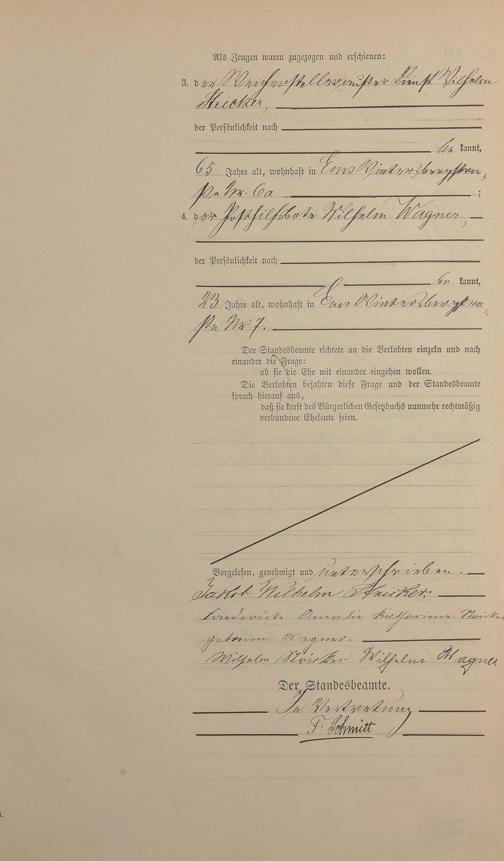 Als Zeugen waren zugezogen und erschienen:
3. der Weichensteller außer Dienst Wilhelm
Stricker,
der Persönlichkeit nach
be kannt,
65 Jahre alt, wohnhaft in Ems Wintersbergstra-
ße Nr. 6a ;
4. der Posthilfsbote Wilhelm Wagner,
der Persönlichkeit nach
be kannt,
23 Jahre alt, wohnhaft in Ems Wintersbergstra-
ße Nr. 7.
Der Standesbeamte richtete an die Verlobten einzeln und nach
einander die Frage:
ob sie die Ehe mit einander eingehen wollen.
Die Verlobten bejahten diese Frage und der Standesbeamte
sprach hierauf aus,
daß sie kraft des Bürgerlichen Gesetzbuchs nunmehr rechtmäßig
verbundene Eheleute seien.
Vorgelesen, genehmigt und unterschrieben.
Jakob Wilhelm Stricker.
Friedericke Amalie Katharina Stricker
geborene Wagner.
Wilhelm Stricker Wilhelm Wagner
Der Standesbeamte.
In Vertretung
F. Schmitt